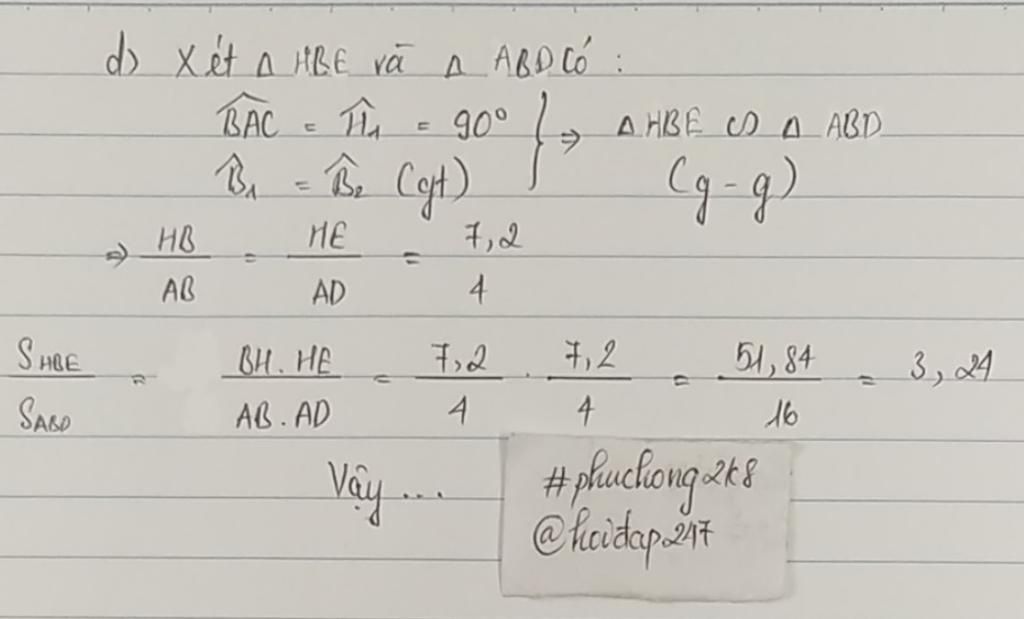 d) Xét Δ HBE và Δ ABD có :
B̂AC = Ĥ₁ = 90° } ⇒ Δ HBE ∽ Δ ABD
B̂₁ = B̂₂ (gt) (g - g)
⇒ HB/AB = HE/AD = 7,2/4
S_HBE/S_ABD = BH.HE/AB.AD = 7,2/4 . 7,2/4 = 51,84/16 = 3,24
Vậy ...
#phuchong2k8
@hoidap247